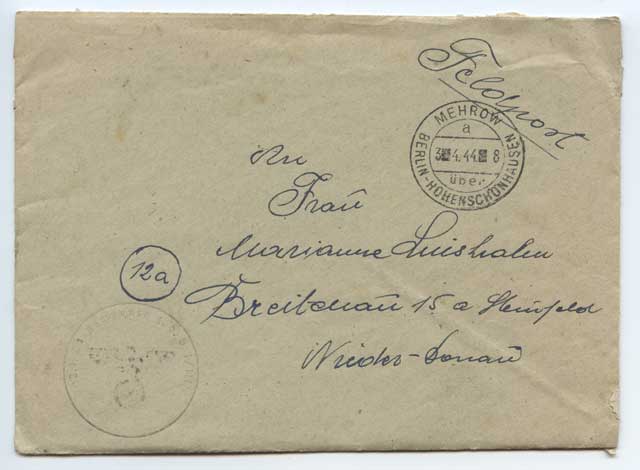 Feldpost
MEHROW
a
3 4.44 8
über
BERLIN-HOHENSCHÖNHAUSEN
An
Frau
Marianne
12a
Breitenau 15 a
Nieder-Donau